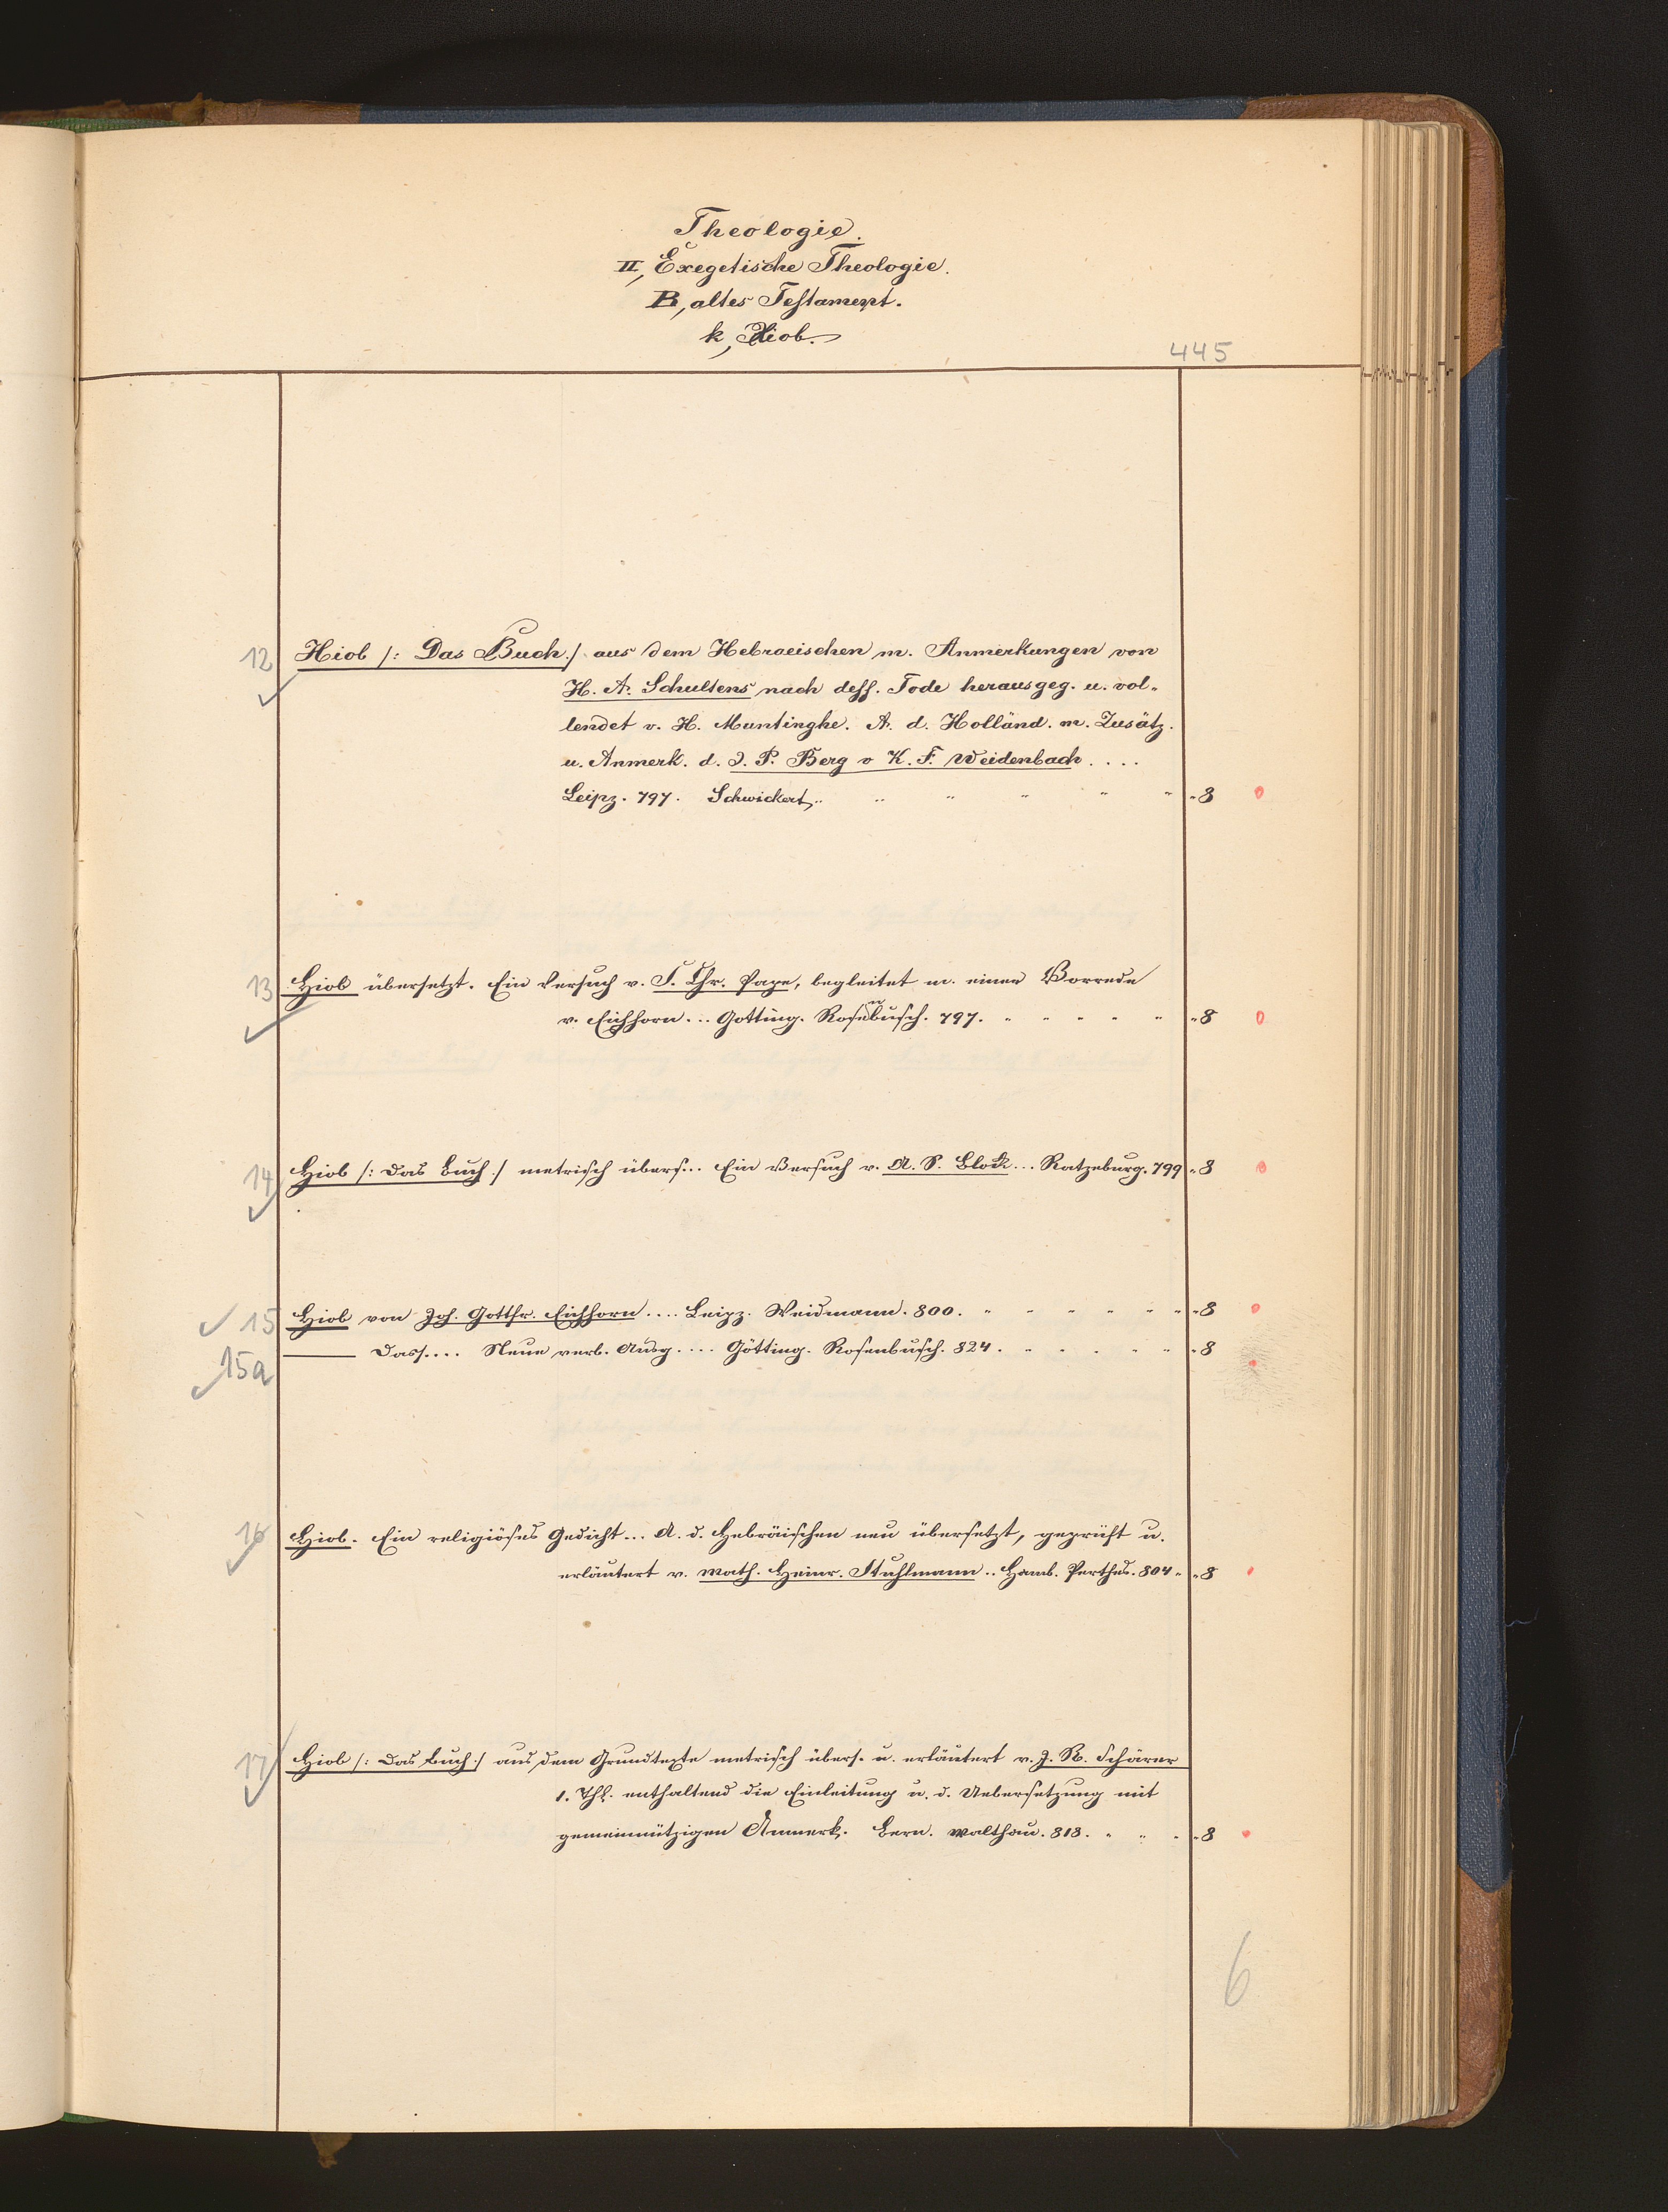 Theologie.
II, Exegetische Theologie.
B, altes Testament.
k, Hiob.
445
12 Hiob /: Das Buch :/ aus dem Hebraeischen m. Anmerkungen von
H. A. Schultens nach dess. Tode herausgeg. u. vol-
lendet v. H. Muntinghe. A. d. Holländ. m. Zusätz.
u. Anmerk. d. J. P. Berg v K. F. Weidenbach ....
Leipz. 797. Schwickert, " " " " " " 8
13 Hiob übersetzt. Ein Versuch v. S. Chr. Pape, begleitet m. einer Vorrede
v. Eichhorn... Gotting. Rosenbusch. 797. " " " " " " 8
14 Hiob /: Das Buch :/ metrisch übers... Ein Versuch v. A. S. Block... Ratzeburg. 799 " 8
15 Hiob von Joh. Gottfr. Eichhorn.... Leipz. Weidmann. 800. " " " " " " " 8
15a — Dass.... Neue verb. Ausg.... Götting. Rosenbusch. 824. " " " " " " 8
16 Hiob. Ein religiöses Gedicht... A. d. Hebräischen neu übersetzt, geprüft u.
erläutert v. Math. Heinr. Stuhlmann.. Hamb. Perthes. 804 " " 8
17 Hiob /: Das Buch :/ aus dem Grundtexte metrisch übers. u. erläutert v. J. R. Schärer
1. Thl. enthaltend die Einleitung u. d. Uebersetzung mit
gemeinnützigen Anmerk. Bern. Walthau. 818. " " " " 8
6